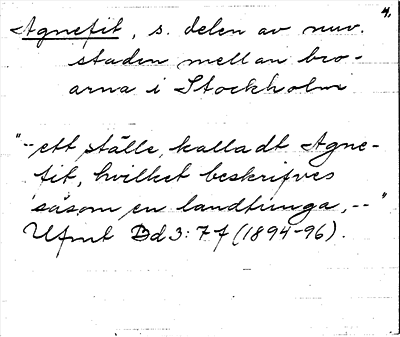 4.
Agnefit, s. delen av nuv.
staden mellan bro-
arna i Stockholm
"-- ett ställe, kalladt Agne-
fit, hvilket beskrifves
såsom en landtunga, --"
Ufmt Bd 3: 7 f (1894-96).